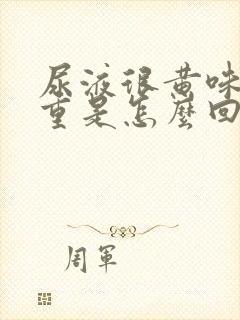 尿液很黄味
重是怎麼回
周軍